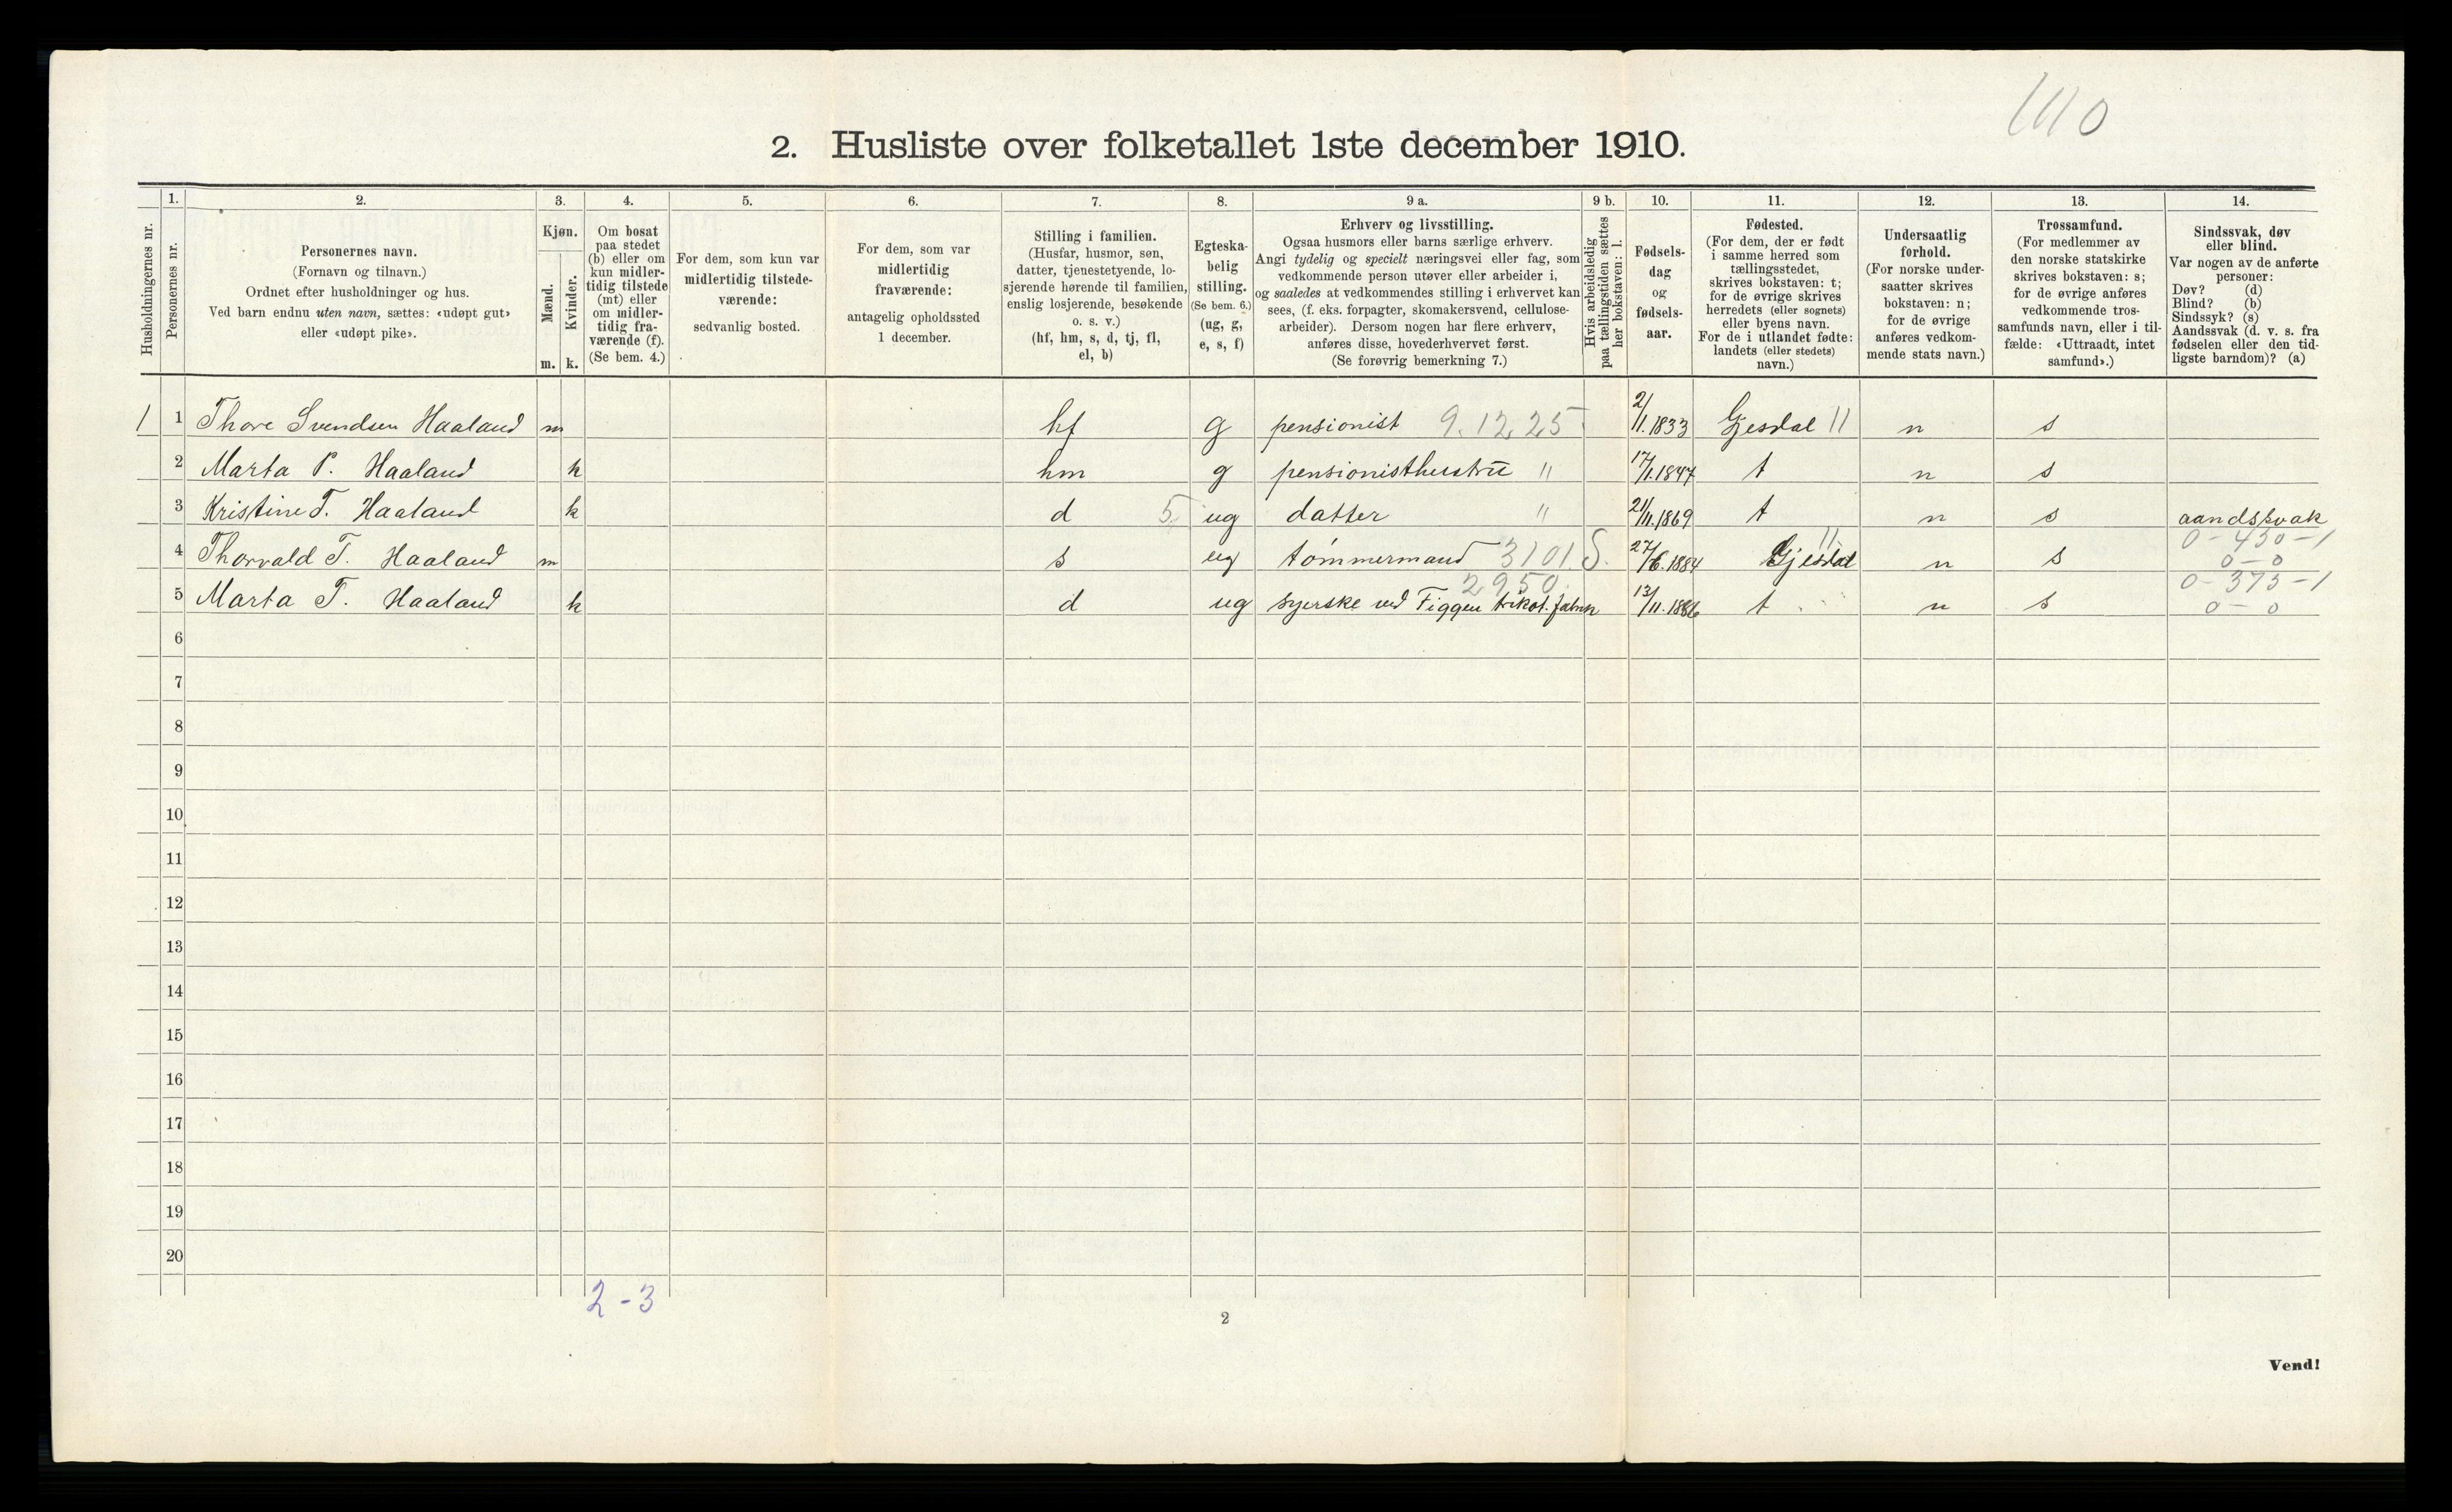 1110
2. Husliste over folketallet 1ste december 1910.
Husholdningernes nr.
1.
Personernes nr.
2.
Personernes navn.
(Fornavn og tilnavn.)
Ordnet efter husholdninger og hus.
Ved barn endnu uten navn, sættes: «udøpt gut»
eller «udøpt pike».
3.
Kjøn.
Mænd.
m.
Kvinder.
k.
4.
Om bosat
paa stedet
(b) eller om
kun midler-
tidig tilstede
(mt) eller
om midler-
tidig fra-
værende (f).
(Se bem. 4.)
5.
For dem, som kun var
midlertidig tilstede-
værende:
sedvanlig bosted.
6.
For dem, som var
midlertidig
fraværende:
antagelig opholdssted
1 december.
7.
Stilling i familien.
(Husfar, husmor, søn,
datter, tjenestetyende, lo-
sjerende hørende til familien,
enslig losjerende, besøkende
o. s. v.)
(hf, hm, s, d, tj, fl,
el, b)
8.
Egteska-
belig
stilling.
(Se bem. 6.)
(ug, g,
e, s, f)
9 a.
Erhverv og livsstilling.
Ogsaa husmors eller barns særlige erhverv.
Angi tydelig og specielt næringsvei eller fag, som
vedkommende person utøver eller arbeider i,
og saaledes at vedkommendes stilling i erhvervet kan
sees, (f. eks. forpagter, skomakersvend, cellulose-
arbeider). Dersom nogen har flere erhverv,
anføres disse, hovederhvervet først.
(Se forøvrig bemerkning 7.)
9 b.
Hvis arbeidsledig
paa tællingstiden sættes
her bokstaven: l.
10.
Fødsels-
dag
og
fødsels-
aar.
11.
Fødested.
(For dem, der er født
i samme herred som
tællingsstedet,
skrives bokstaven: t;
for de øvrige skrives
herredets (eller sognets)
eller byens navn.
For de i utlandet fødte:
landets (eller stedets)
navn.)
12.
Undersaatlig
forhold.
(For norske under-
saatter skrives
bokstaven: n;
for de øvrige
anføres vedkom-
mende stats navn.)
13.
Trossamfund.
(For medlemmer av
den norske statskirke
skrives bokstaven: s;
for de øvrige anføres
vedkommende tros-
samfunds navn, eller i til-
fælde: «Uttraadt, intet
samfund».)
14.
Sindssvak, døv
eller blind.
Var nogen av de anførte
personer:
Døv? (d)
Blind? (b)
Sindssyk? (s)
Aandssvak (d. v. s. fra
fødselen eller den tid-
ligste barndom)? (a)
1 1 Thore Svendsen Haaland m hf g pensionist 9.12.25 2/11.1833 Gjesdal 11 n s
2 Marta P. Haaland k hm g pensionisthustru " 17/1.1847 t n s
3 Kristine T. Haaland k d 5. ug datter " 21/11.1869 t n s aandssvak
4 Thorvald T. Haaland m s ug tømmermand 3101 S. 27/6.1884 Gjesdal 11 n s 0-450-1
0-0
5 Marta T. Haaland k d ug syerske ved Figgen trikot. fabrik 2950. 13/11.1886 t n s 0-375-1
0-0
6
7
8
9
10
11
12
13
14
15
16
17
18
19
20
2-3
2
Vend!